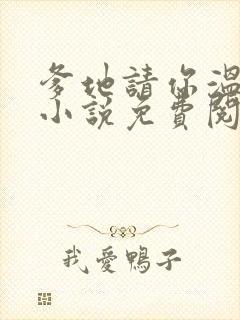 爹地請你溫
小說免費閱
我愛鴨子